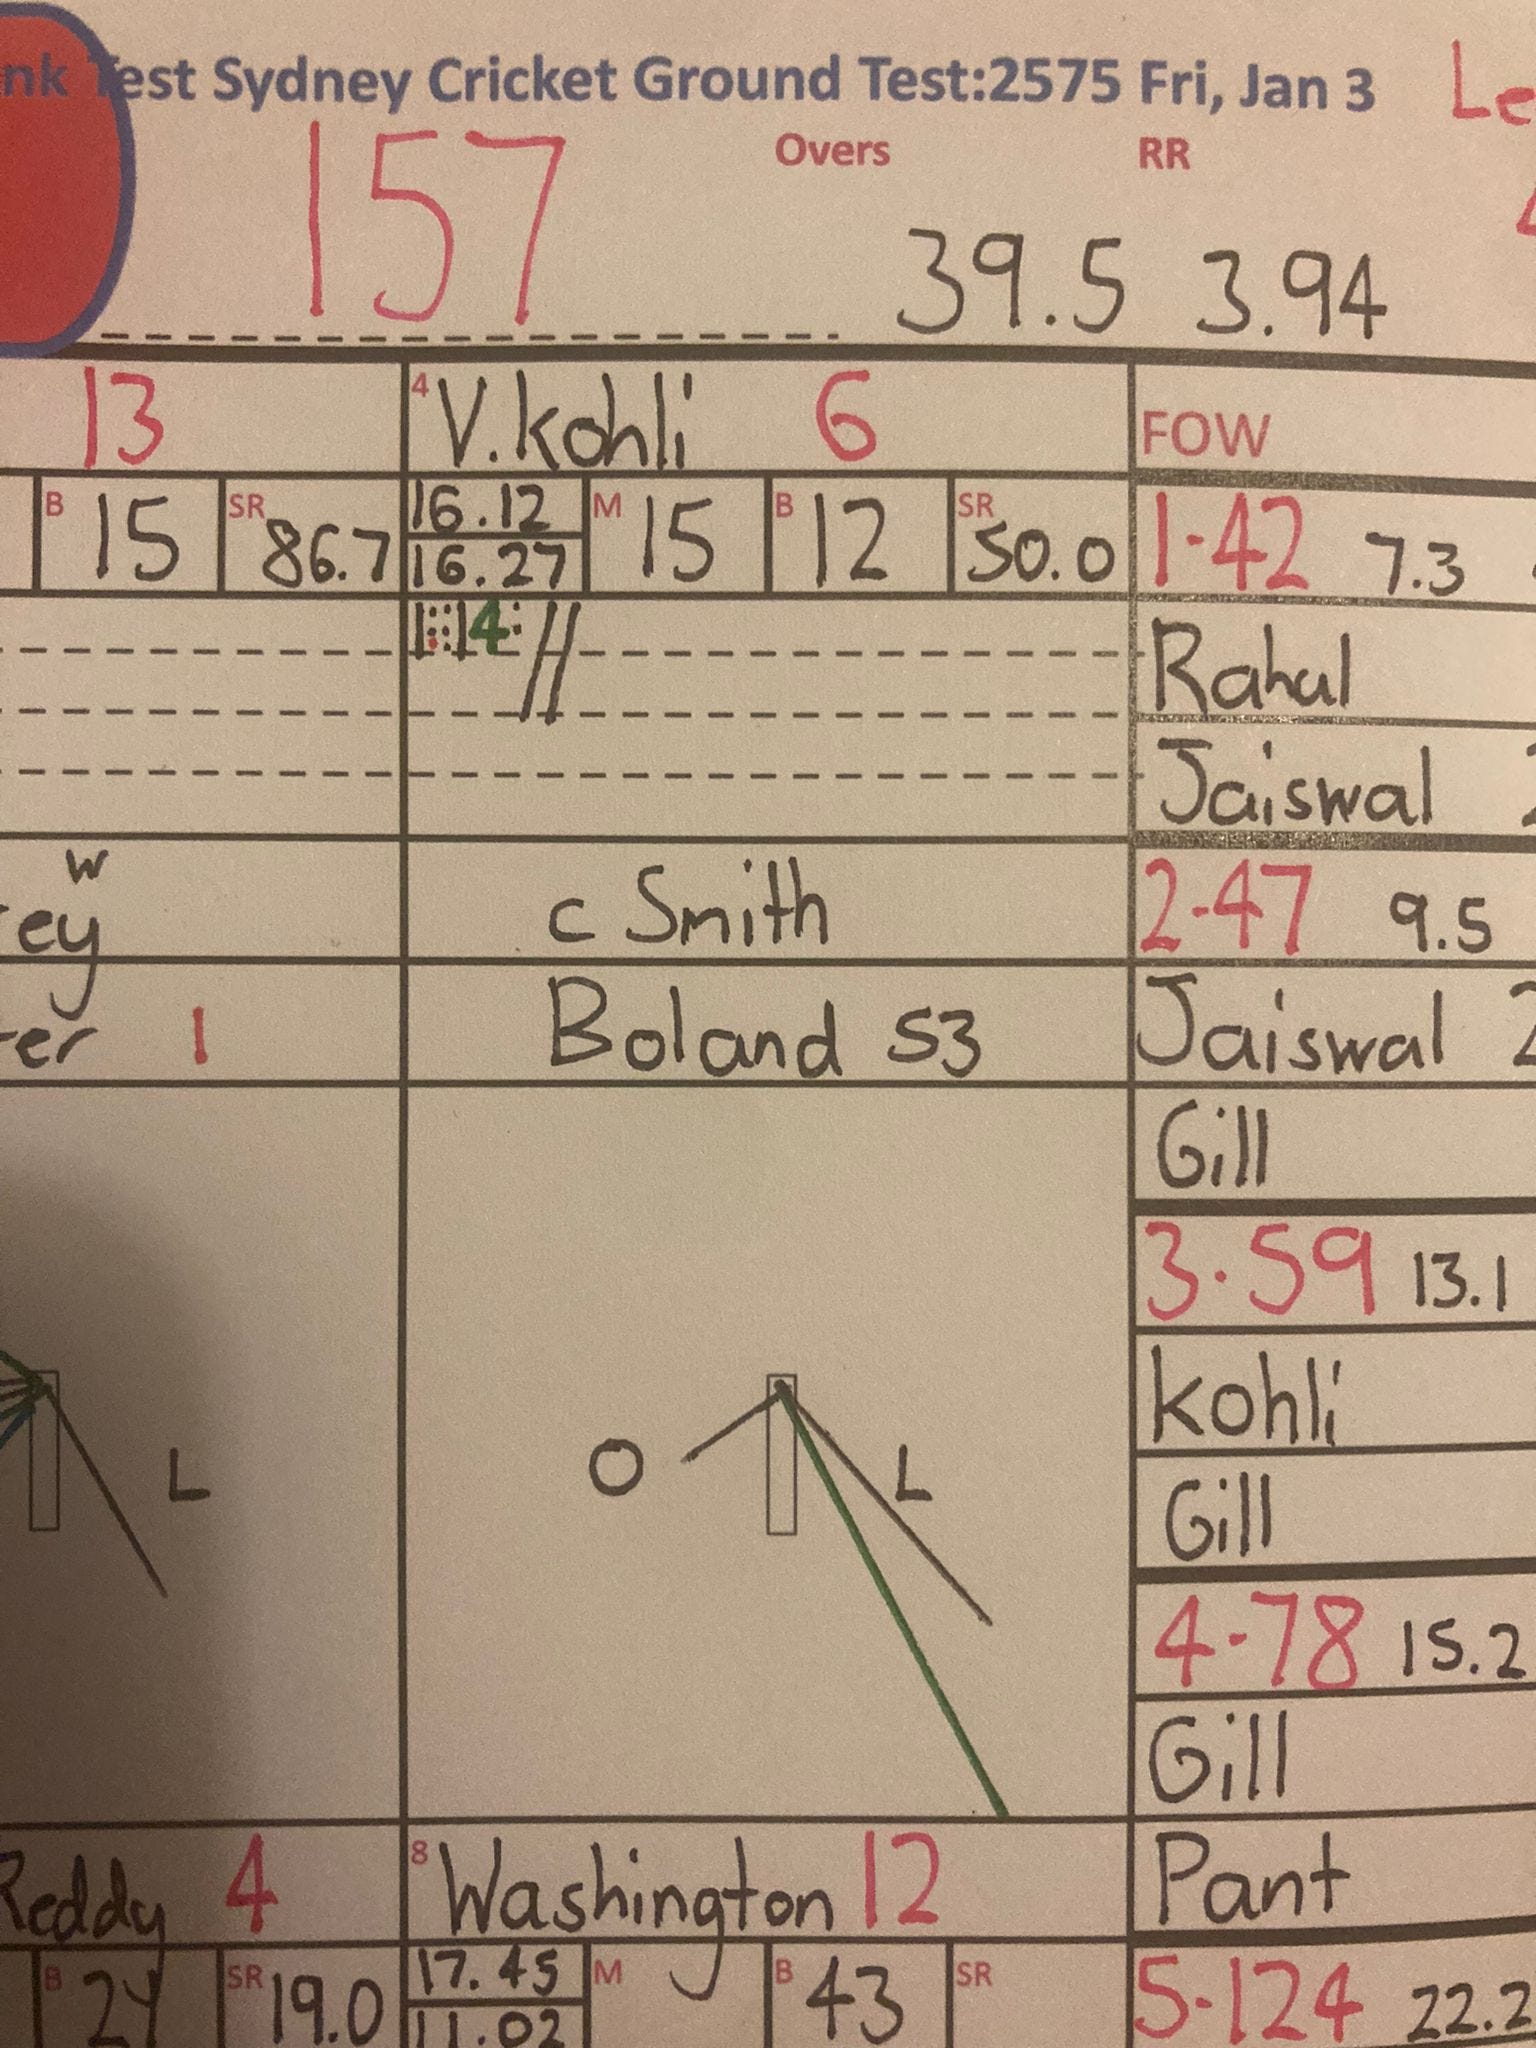 nk Test Sydney Cricket Ground Test:2575 Fri, Jan 3
157 Overs 39.5 RR 3.94
13
4 V. Kohli 6
FOW
B 15 SR 86.7
16.12 M 15 B 12 SR 50.0
16.27
1-42 7.3
4
Rahul
Jaiswal
w
ey
c Smith
2-47 9.5
er 1
Boland S3
Jaiswal 2
Gill
3-59 13.1
Kohli
Gill
L
O L
4-78 15.2
Gill
Pant
Reddy 4
8 Washington 12
B 21 SR 19.0
17.45 M B 43 SR
11.02
5-124 22.2